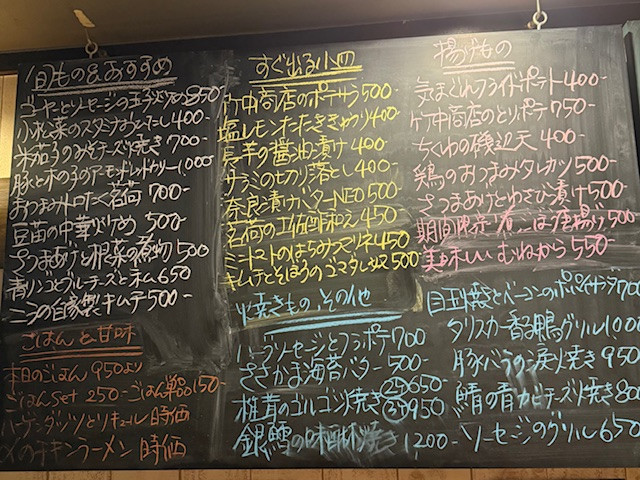 旬もの&おすすめ
ゴーヤとソーセージの玉子炒め 850
小松菜のスタミナおひたし 400-
米茄子のみそチーズ焼き 700
豚と木の子のアーモンドレッドカリー 1,000
おつまみ 名荷 700-
豆苗の中華炒め 500-
さつまあげと根菜の煮物 500
青リンゴとブルーチーズとネム 650
ニラの自家製キムチ 500-
ごはんと甘味
本日のごはん 950より
ごはんset 250- ごはん単品150
ハーゲンダッツとリキュール 時価
〆のチキンラーメン 時価
すぐ出る小皿
竹中商店のポテサラ 500-
塩レモンたたききゅうり 400
長芋の醤油漬け 400
サラミの切り落とし 400-
奈良と漬けバターNEO 500-
名荷の土佐酢和え 450
ミニトマトのはちみつマリネ 450
キムチとそぼろのゴマ 450
焼きもの、その他
ハーブソーセージとフライポテ 700
ささかま海苔バター 500-
椎茸のゴルゴンゾ焼き ②650- ③950
銀鱈の味醂焼き 1,200-
揚げもの
気まぐれフライドポテト 400-
竹中商店のとりポテ 750-
ちくわの磯辺天 400-
鶏のおつまみタレカツ 500-
さつまあげとわさび漬け 500
期間限定!煮ごぼ唐揚げ 500
美味しいむねから 550-
目玉焼とベーコンのポパイサラダ 700
タリスカー香る鴨グリル 1000
豚バラの戻り焼き 950
鯖の青カビチーズ焼き 800
ソーセージのグリル 650